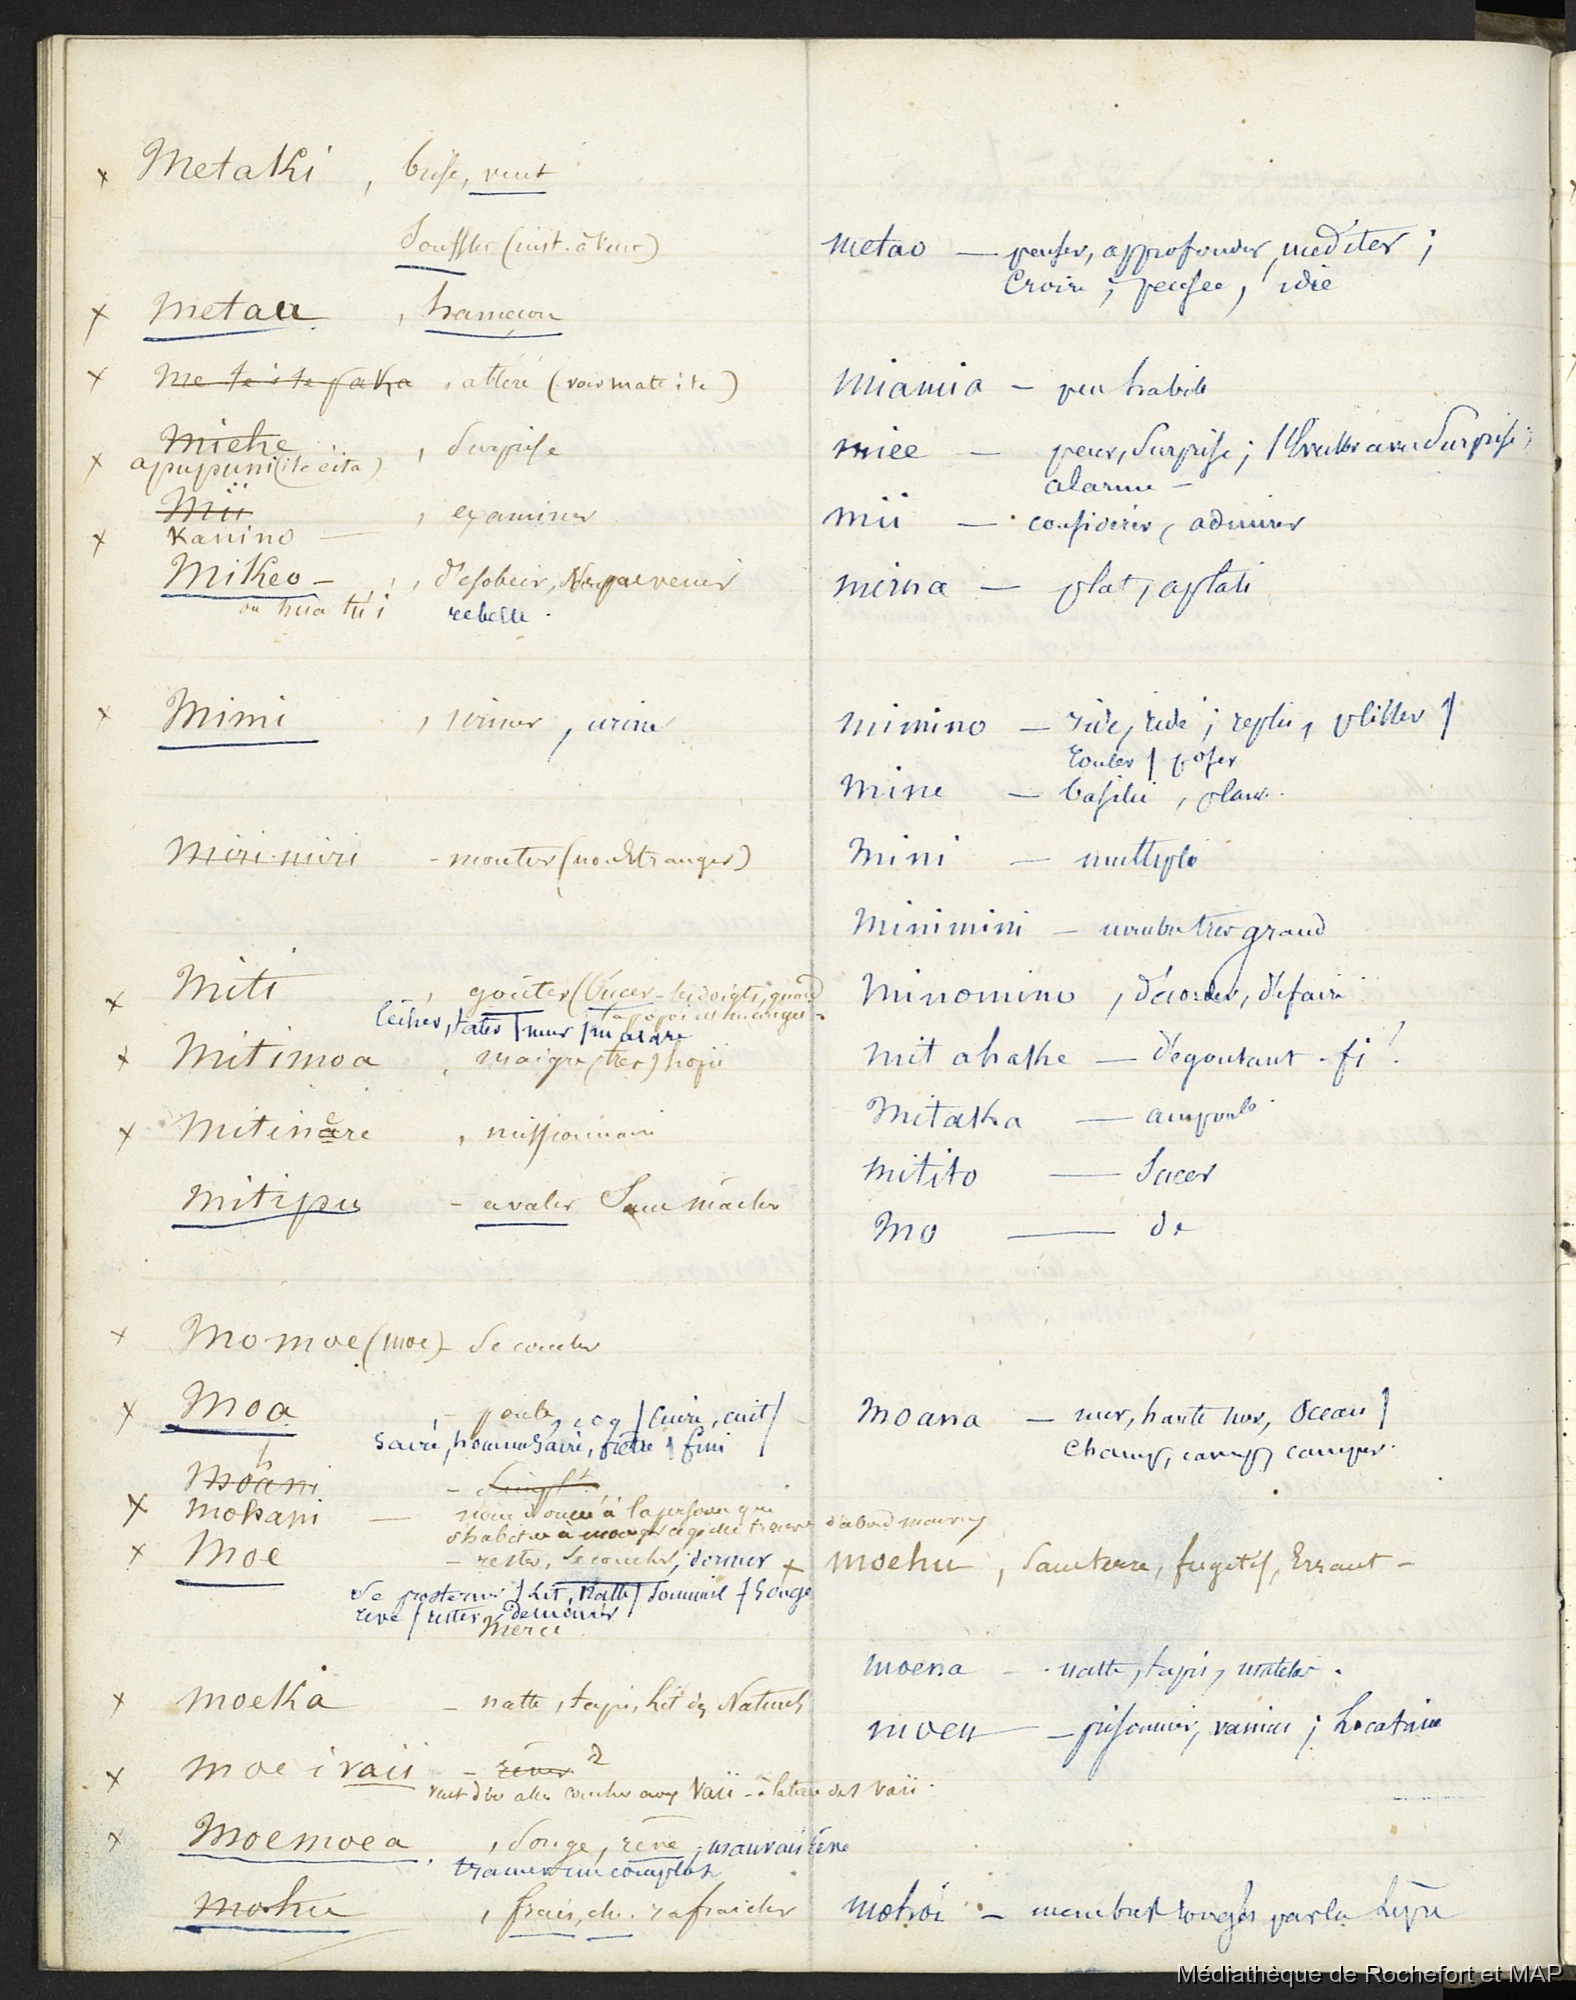 x Metaki , brise, vent
Souffler (inst. à vent)
x metau , hameçon
x me te ite paka , atteré (voir mate ite)
Miehe , Surprise
x apupuni (ite éita)
Mii , examiner
x Kanino —
Mikeo — , désobéir, 
ou hua tii rebelle.
x Mimi , uriner, urine
Mirimiri - monter (non Etranger)
x Miti , goûter (Sucer les doigts, quand
la popoi est mangée
lécher, tater / mer /
x Mitimoa , maigre (très) hopii
x Mitinare , missionnaire
Mitipu - avaler Sans mâcher
x Momoe (moe) - Se coucher
x Moa - poule, coq / Cuire, cuit /
Sacré, homme Sacré, prêtre / fini
Moâni
x mokani — nom donné à la personne qui
d'abord
x Moe - rester, Se coucher, dormir
Se prosterner / Lit, Natte / Sommeil / Songe
reve / rester, demeurer
Merci
x moeka - natte, tapis, Lit des Naturels
x moe i vaii - rêver ?
veut dire aller coucher aux Vaii - à la terre des vaii.
x Moemoea , Songe, rêve, mauvais rêve
tramer un complot
mohu , frais, che. rafraichir
metao — penser, approfondir, méditer ;
Croire ; pensée, idée
Miamia — peu habile
miee — peur, Surprise ; Surprise ;
alarme —
mii — considérer, admirer
mima — plat, aplati
mimino — ride, ridé ; replis, plisser /
rouler / poser
mine — basilic, plante.
Mini — multiple
Minimini — nombre très grand
Minomino , détordre, défaire
mit ahahe — dégoutant - fi !
Mitaka — ampoule
mitito — Sucer
Mo — de
Moana — mer, haute mer, Océan /
Champ, camp, camper.
x moehu , Sans terre, fugitif, Errant —
moena — natte, tapis, matelas.
moeu — prisonnier, vaincu ; Locataire
mohoi — membres rongés par la Lèpre
Médiathèque de Rochefort et MAP